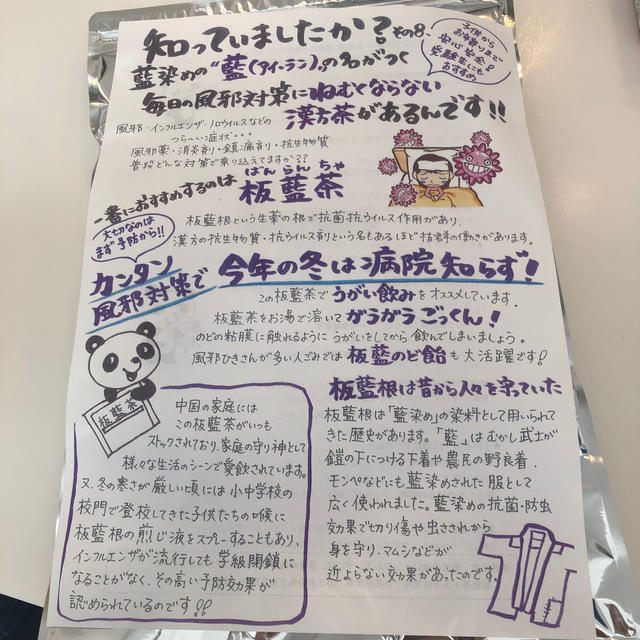 知っていましたか？その8
子供から
お年寄りまで
安心安全♪
受験生にも
おすすめ
藍染めの"藍(アイ・ラン)"の名がつく
毎日の風邪対策にねむくならない
漢方茶があるんです!!
風邪・インフルエンザ・ノロウイルスなどの
つら〜い症状・・・
風邪薬・消炎剤・鎮痛剤・抗生物質
普段どんな対策で乗り込えてますか??
一番におすすめするのは
ばんらんちゃ
板藍茶
板藍根という生薬の根で抗菌抗ウイルス作用があり、
漢方の抗生物質・抗ウイルス剤という名もあるほど抜群の働きがあります。
大切なのは
まず予防から!!
カンタン
風邪対策で
今年の冬は病院知らず!
この板藍茶でうがい飲みをオススメしています。
板藍茶をお湯で溶いてガラガラごっくん!
のどの粘膜に触れるようにうがいをしてから飲んでしまいましょう。
風邪ひきさんが多い人ごみでは板藍のど飴も大活躍です!
板藍茶
中国の家庭には
この板藍茶がいつも
ストックされており、家庭の守り神として
様々な生活のシーンで愛飲されています。
又、冬の寒さが厳しい頃には小中学校の
校門で登校してきた子供たちの喉に
板藍根の煎じ液をスプレーすることもあり、
インフルエンザが流行しても学級閉鎖に
なることがなく、その高い予防効果が
認められているのです!!
板藍根は昔から人々を守っていた
板藍根は「藍染め」の染料として用いられて
きた歴史があります。「藍」はむかし武士が
鎧の下につける下着や農民の野良着、
モンペなどにも藍染めされた服として
広く使われました。藍染めの抗菌・防虫
効果で切り傷や虫さされから
身を守り、マムシなどが
近よらない効果があったのです。